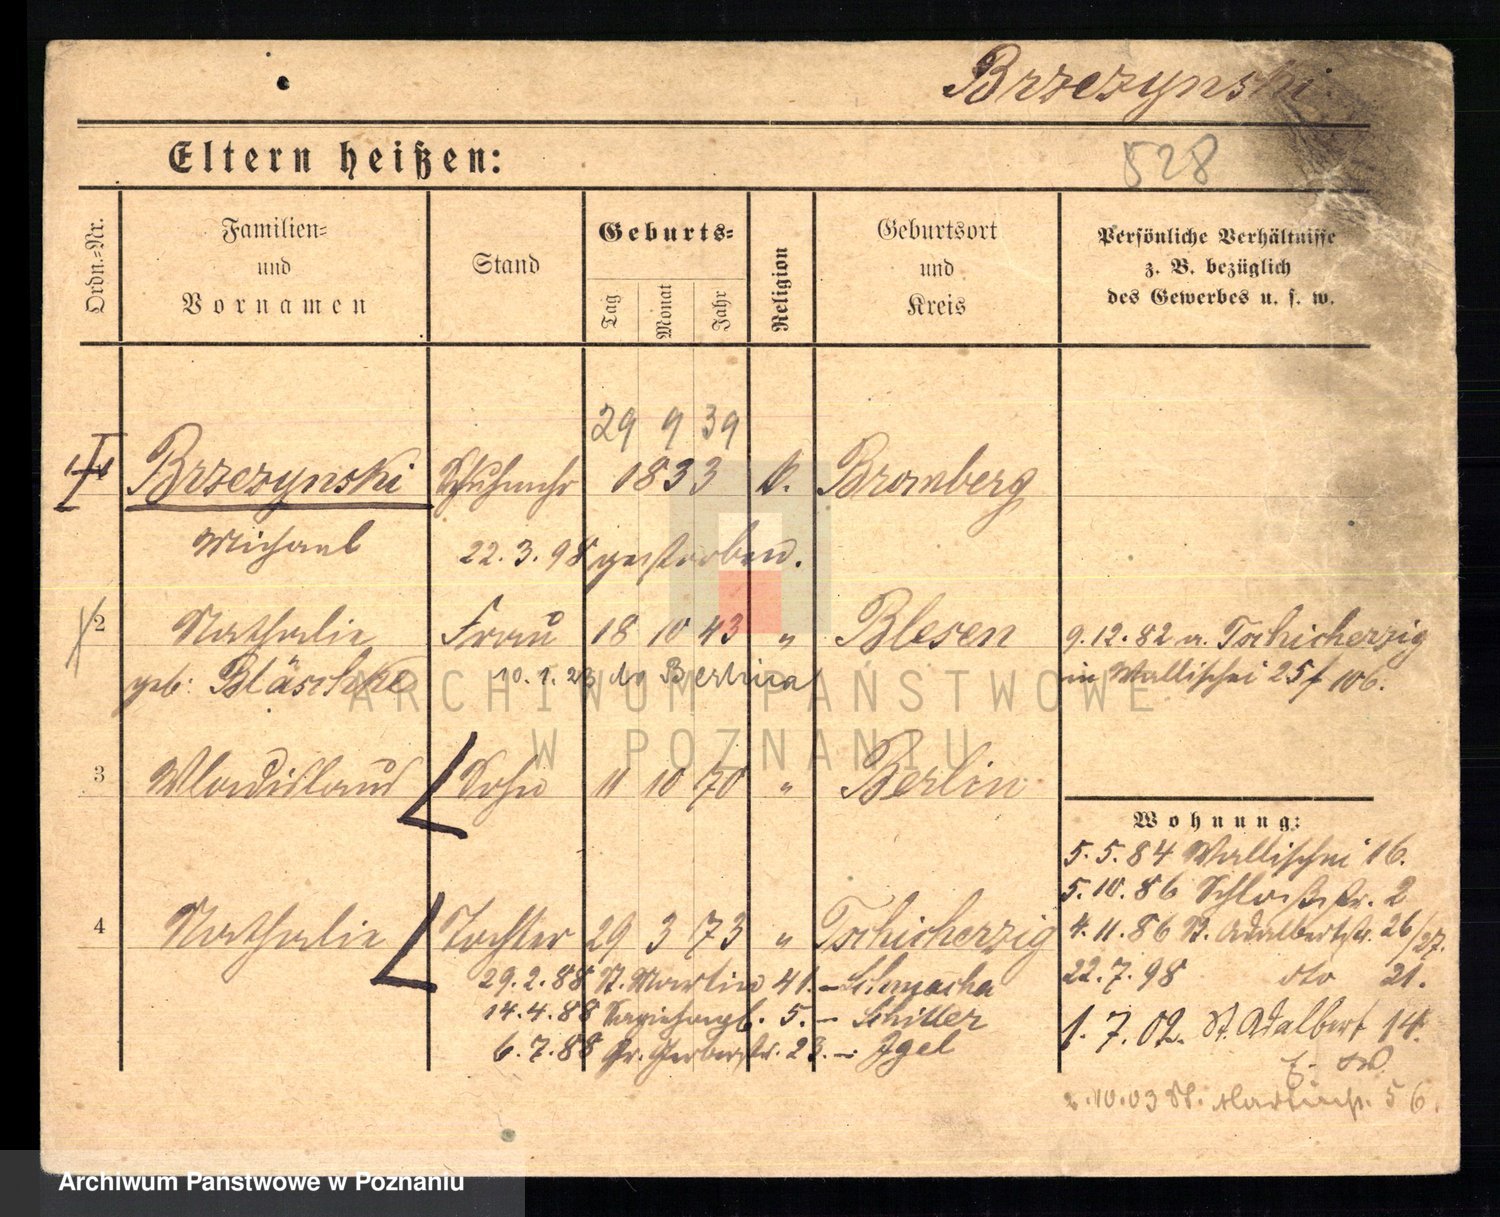 Brzezynski.
Eltern heißen:
528
Ordn.-Nr.
Familien-
und
Vornamen
Stand
Geburts-
Tag
Monat
Jahr
Religion
Geburtsort
und
Kreis
Persönliche Verhältnisse
z. B. bezüglich
des Gewerbes u. s. w.
29 9 39
1 Brzezynski 1833 k. Bromberg
Michael 22.3.98 gestorben.
2 Nathalie Frau 18 10 43 " Blesen 9.12.82 a. Tschicherzig
geb: Bläschke 10.1.23 Berlin in Wallischei 106.
3 Wladislaus Sohn 11 10 70 " Berlin
Wohnung:
5.5.84 Wallischei 16.
5.10.86 Schloßstr. 2
4 Nathalie Tochter 29 3 73 " Tschicherzig 4.11.86 St. Adalbertstr. 26/27.
29.2.88 St. Martin 41. – Schmacha 22.7.98 dto 21.
14.4.88 5. – Schiller
6.7.88 Gr. Gerberstr. 23. – Igel 1.7.02. St. Adalbert 14.
2.10.03 St. Martinstr. 56.
ARCHIWUM PAŃSTWOWE
W POZNANIU
Archiwum Państwowe w Poznaniu